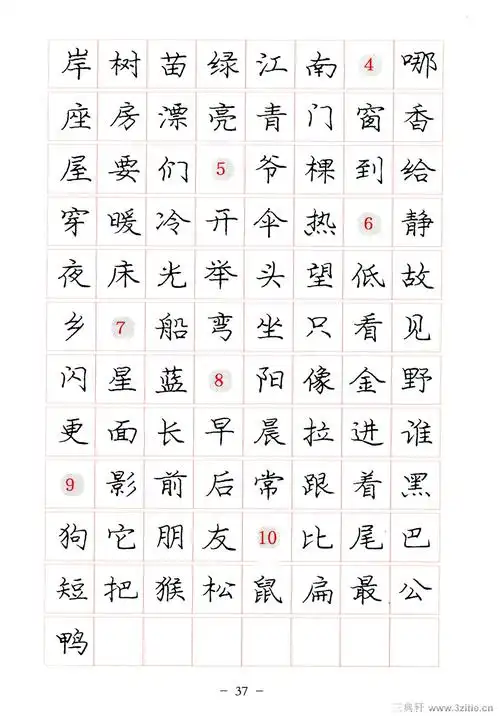 岸树苗绿江南4哪
座房漂亮青门窗香
屋要们5爷棵到给
穿暖冷开伞热6静
夜床光举头望低故
乡7船弯坐只看见
闪星蓝8阳像金野
更面长早晨拉进谁
9影前后常跟着黑
狗它朋友10比尾巴
短把猴松鼠扁最公
鸭
- 37 -
三典轩 www.3zitie.cn